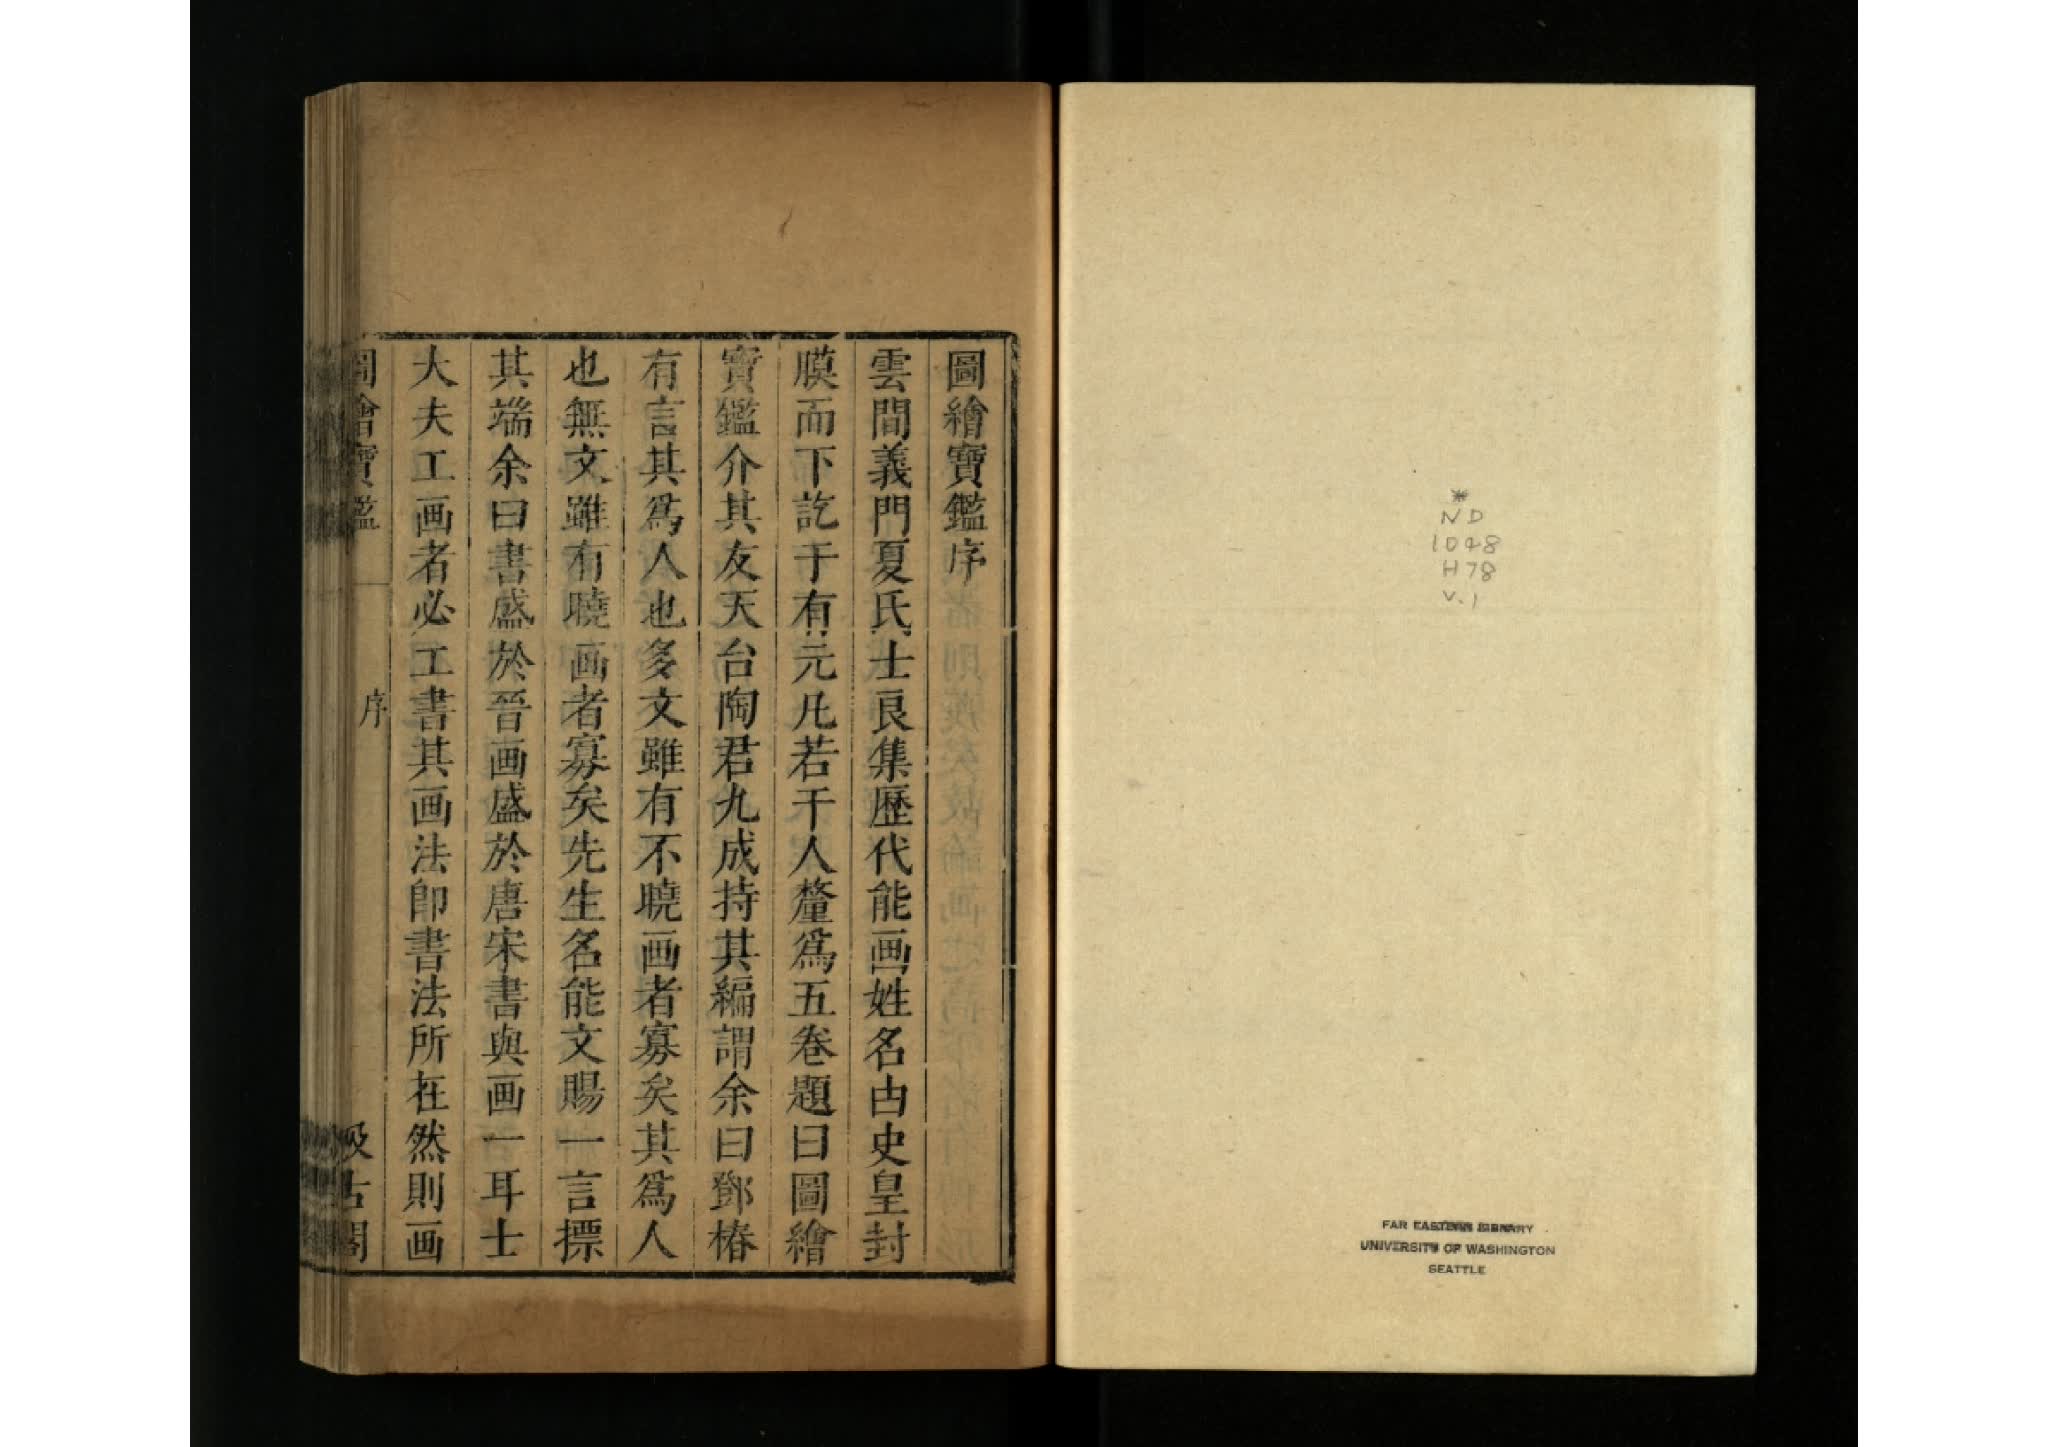 圖繪寶鑑序
雲間義門夏氏士良集歷代能画姓名由史皇封
膜而下訖于有元凡若干人釐爲五卷題曰圖繪
寶鑑介其友天台陶君九成持其編謂余曰鄧椿
有言其爲人也多文雖有不曉画者寡矣其爲人
也無文雖有曉画者寡矣先生名能文賜一言摽
其端余曰書盛於晉画盛於唐宋書與画一耳士
大夫工画者必工書其画法卽書法所在然則画
圖繪寶鑑
序
汲古閣
*
ND
1048
H78
v.1
FAR EASTERN LIBRARY
UNIVERSITY OF WASHINGTON
SEATTLE